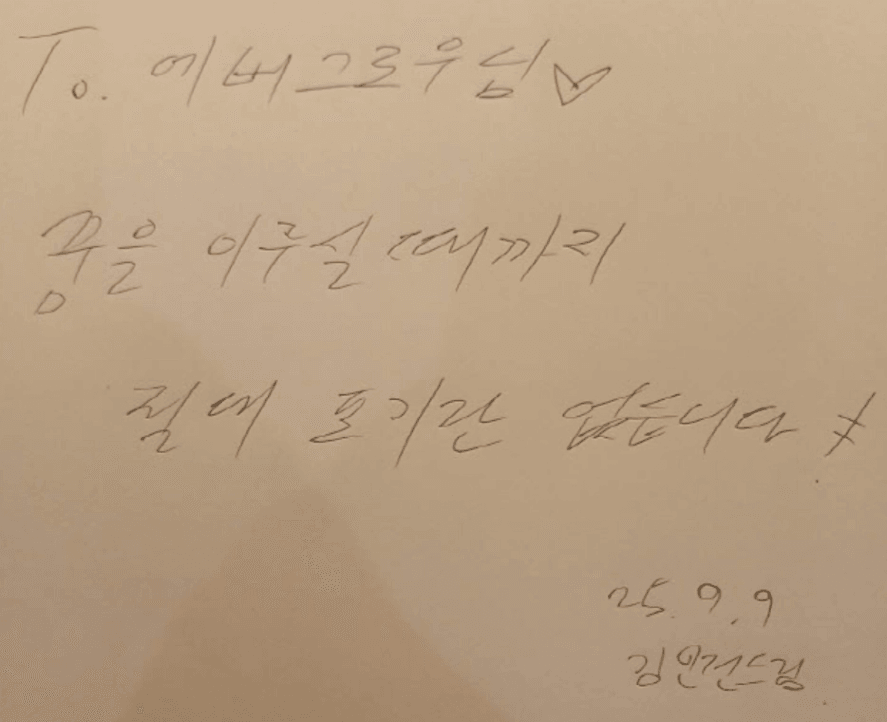 To. 에버그로우님♡
꿈을 이루실 때까지
절대 포기란 없습니다
25. 9. 9
김인건드림